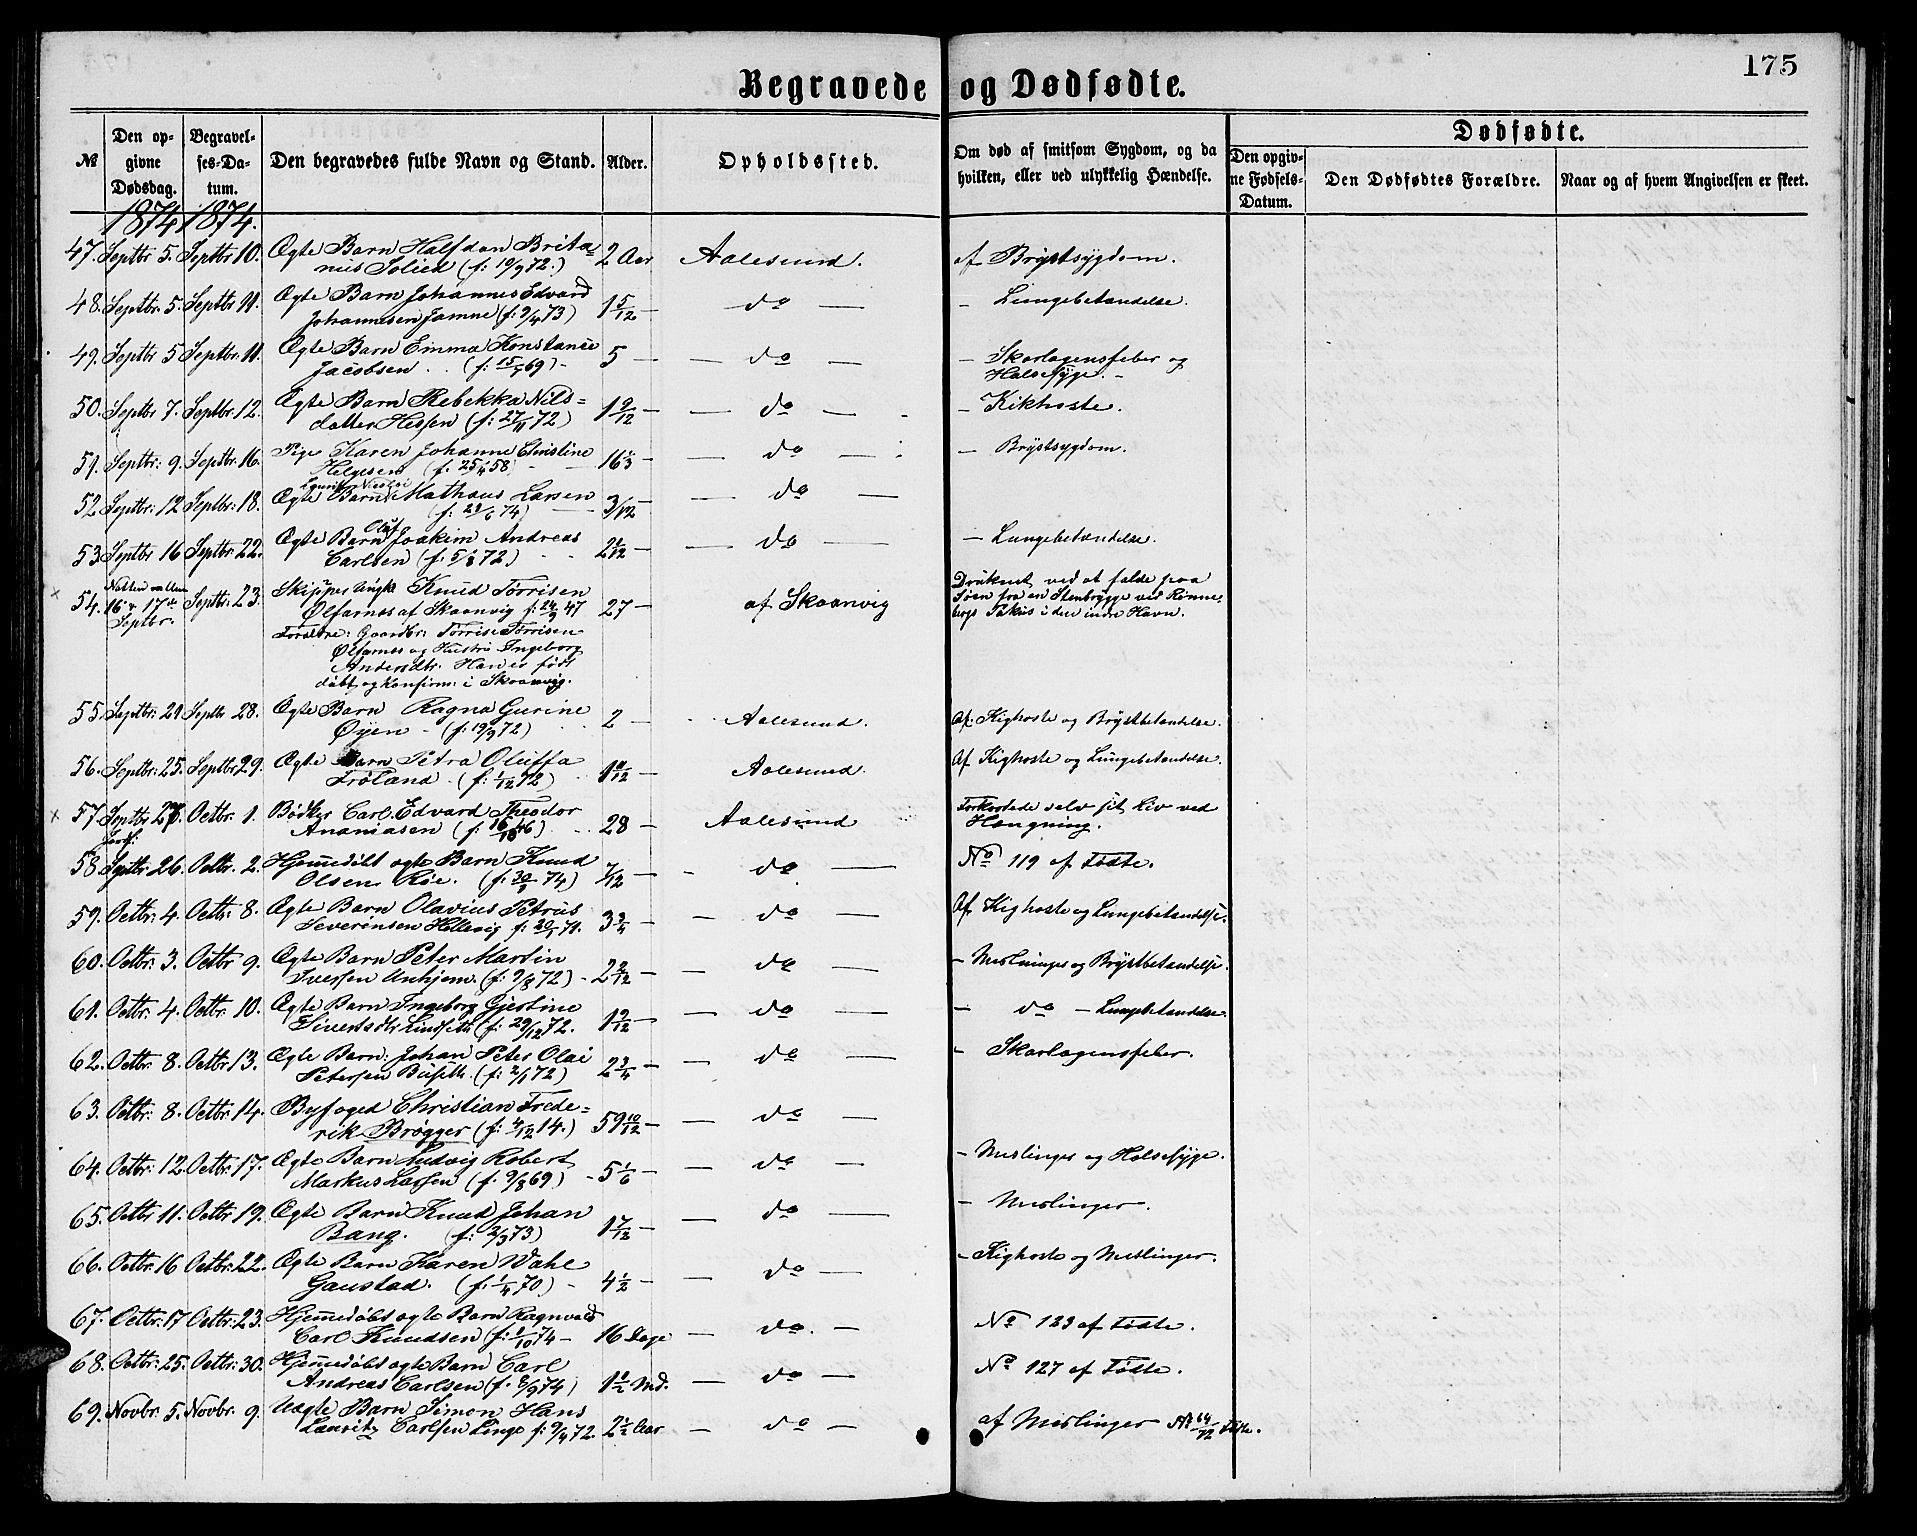 175
Begravede og Dødfødte.
№
Den op-
givne
Dødsdag.
Begravel-
ses-Da-
tum.
Den begravedes fulde Navn og Stand.
Alder.
Opholdssted.
Om død af smitsom Sygdom, og da
hvilken, eller ved ulykkelig Hændelse.
Dødfødte.
Den opgiv-
ne Fødsels-
Datum.
Den Dødfødtes Forældre.
Naar og af hvem Angivelsen er skeet.
1874 1874.
47. Septbr 5. Septbr 10. Ægte Barn Halfdan Brita-
nius Solied (f: 10/9 72.) 2 Aar Aalesund. af Brystsygdom.
48. Septbr. 5. Septbr 11. Ægte Barn Johannes Edvard
Johannesen Jamne (f: 9/4 73) 1 5/12 — do — — Lungebetændelse.
49. Septbr 5 Septbr. 11. Ægte Barn Emma Konstanse
Jacobsen . . (f: 15/ 69) - 5 — do — — Skarlagensfeber og
Halssyge. -
50. Septbr 7. Septbr. 12. Ægte Barn Rebekka Nils=
datter Hessen (f: 27/11 72) 1 9/12 — do — — Kikhoste.
51. Septbr: 9. Septbr. 16. Pige Karen Johanne Christine
Helgesen (f. 25/4 58) 16 1/3 — do — — Brystsygdom.
52 Septbr: 12 Septbr: 18. Ægte Barn Mathæus Larsen
(f: 23/6 74) 3/12 — do —
53 Septbr 16 Septbr: 22. Ægte Barn Oluf Joakim Andreas
Carlsen (f. 5/8 72) 2 1/12 — do — — Lungebetændelse.
54. Natten mellem
16 & 17de
Septbr. Septbr: 23. Skipper Ungk. Knud Tørrisen
Ølfarnes af Skaanvig f: 24/9 47 27 — af Skaanvig
Forældre: Gaardbr: Tørris Tørrisen
Ølfarnes og Hustru Ingeborg
Andersdtr. Han er født
døbt og konfirm: i Skaanvig.
Druknet ved at falde paa
Søen fra en Stenbrygge ved Rønne-
bergs Pakhus i den indre Havn.
55. Septbr: 21 Septbr 28. Ægte Barn Ragna Gurine
Øyen - (f: 19/9 72) 2 — Aalesund. Af Kighoste og Brystbetændelse.
56. Septbr: 25. Septbr 29. Ægte Barn Petra Oluffa
Frøland. (f: 1/12 72) 1 9/12 — Aalesund. Af Kighoste og Lungebetændelse.
57. Septbr 27. Octbr. 1. Bødker Carl Edvard Theodor
Ananiasen (f: 16/10 46) 28 — Aalesund Forkortede selv sit Liv ved
Hængning.
58 Septbr: 26. Octbr. 2. Hjemmedøbt ægte Barn Knud
Olsen Røe. (f: 30/ 74) 7/12 — do — No 119 af Fødte.
59. Octbr: 4. Octbr: 8. Ægte Barn Olavius Petrus
Severinsen Hellevig f: 20/ 71. 3 3/4 — do — Af Kighoste og Lungebetændelse.
60. Octbr: 3. Octbr 9. Ægte Barn Peter Martin
Iversen Unhjem. (f: 9/8 72) - 2 2/12 — do — — Meslinger og Brystbetændelse.
61. Octbr: 4. Octbr. 10. Ægte Barn Ingeborg Gjertine
Sivertsdtr Lindseth (f: 29/12 72. 1 9/12 — do — — do — Lungebetændelse.
62. Octbr: 8. Octbr 13. Ægte Barn: Johan Peter Olai
Petersen Buseth. (f: 2/1 72) 2 3/4 — do — — Skarlagensfeber.
63. Octbr: 8. Octbr: 14. Byfoged Christian Frede=
rik Brøgger (f: 4/12 14.) 59 10/12 — do —
64. Octbr: 12. Octbr: 17. Ægte Barn Ludvig Robert
Markus Larsen (f. 9/8 69) - 5 1/6 — do — — Meslinger og Halssyge.
65. Octbr 11. Octbr: 19. Ægte Barn Knud Johan
Bang. (f: 2/3 73) 1 7/12 — do — — Meslinger.
66. Octbr: 16 Octbr: 22. Ægte Barn Karen Wahl
Gaustad. (f. 1/4 70) - 4 1/2 — do — — Kighoste og Meslinger.
67. Octbr: 17 Octbr: 23. Hjemmedøbt ægte Barn Ragnvald
Carl Knudsen (f: 1/10 74 - 16 Dage — do. — No 123 af Fødte.
68. Octbr: 25. Octbr: 30. Hjemmedøbt ægte Barn Carl
Andreas Carlsen (f. 8/9 74) 1 1/2 Md. — do — No 127 af Fødte.
69. Novbr: 5. Novbr. 9. Uægte Barn Simon Hans
Lauritz Carlsen Linge f: 9/4 72. 2 1/2 Aar — do — af Meslinger № 64/72 Fødte.